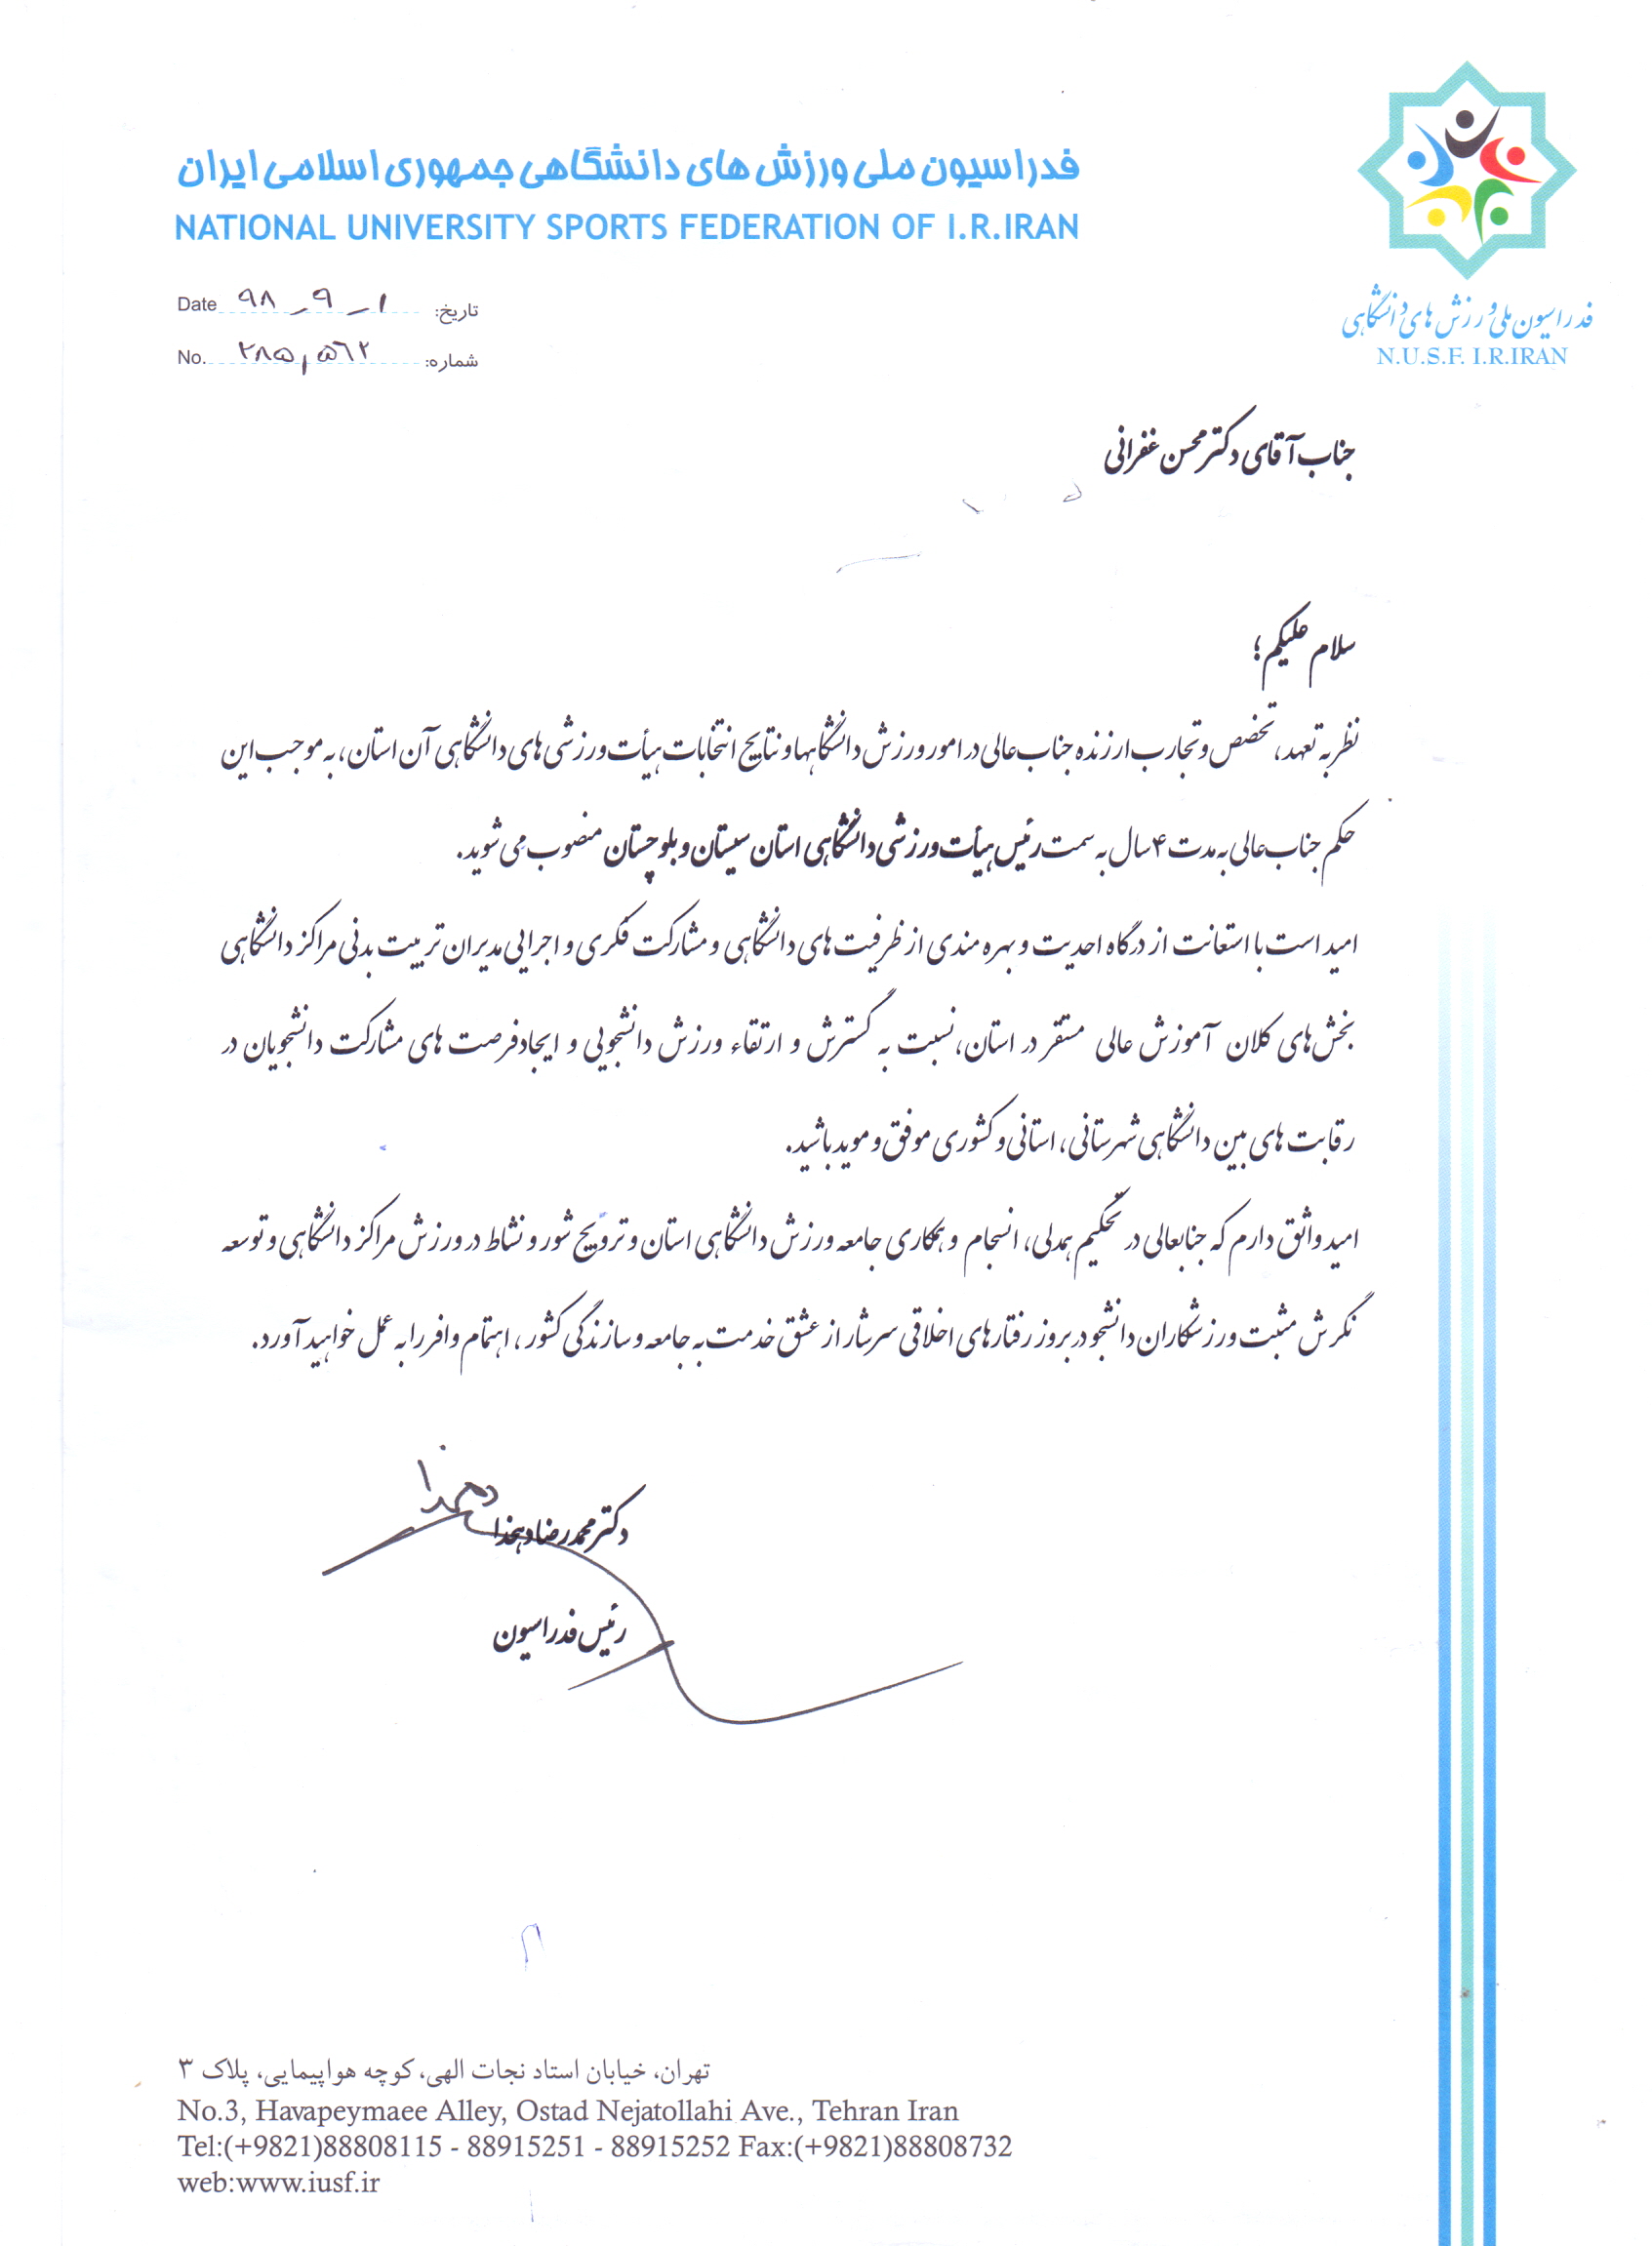 فدراسیون ملی ورزش های دانشگاهی جمهوری اسلامی ایران
NATIONAL UNIVERSITY SPORTS FEDERATION OF I.R.IRAN
فدراسیون ملی ورزش های دانشگاهی
N.U.S.F. I.R.IRAN
تاریخ: ۹۸-۹-۱ Date
شماره: ۲۸۵,۵۶۲ No.
جناب آقای دکتر محسن غفرانی
سلام علیکم؛
نظر به تعهد، تخصص و تجارب ارزنده جناب عالی در امور ورزش دانشگاهها و نتایج انتخابات هیأت ورزشی های دانشگاهی آن استان، به موجب این
حکم جناب عالی به مدت ۴ سال به سمت رئیس هیأت ورزشی دانشگاهی استان سیستان و بلوچستان منصوب می شوید.
امید است با استعانت از درگاه احدیت و بهره مندی از ظرفیت های دانشگاهی و مشارکت فکری و اجرایی مدیران تربیت بدنی مراکز دانشگاهی
بخش های کلان آموزش عالی مستقر در استان، نسبت به گسترش و ارتقاء ورزش دانشجویی و ایجاد فرصت های مشارکت دانشجویان در
رقابت های بین دانشگاهی شهرستانی، استانی و کشوری موفق و موید باشید.
امید واثق دارم که جنابعالی در تحکیم همدلی، انسجام و همکاری جامعه ورزش دانشگاهی استان و ترویج شور و نشاط در ورزش مراکز دانشگاهی و توسعه
نگرش مثبت ورزشکاران دانشجو در بروز رفتارهای اخلاقی سرشار از عشق خدمت به جامعه و سازندگی کشور، اهتمام وافر را به عمل خواهید آورد.
دهخدا
دکتر محمدرضا دهخدا
رئیس فدراسیون
تهران، خیابان استاد نجات الهی، کوچه هواپیمایی، پلاک ۳
No.3, Havapeymaee Alley, Ostad Nejatollahi Ave., Tehran Iran
Tel:(+9821)88808115 - 88915251 - 88915252 Fax:(+9821)88808732
web:www.iusf.ir